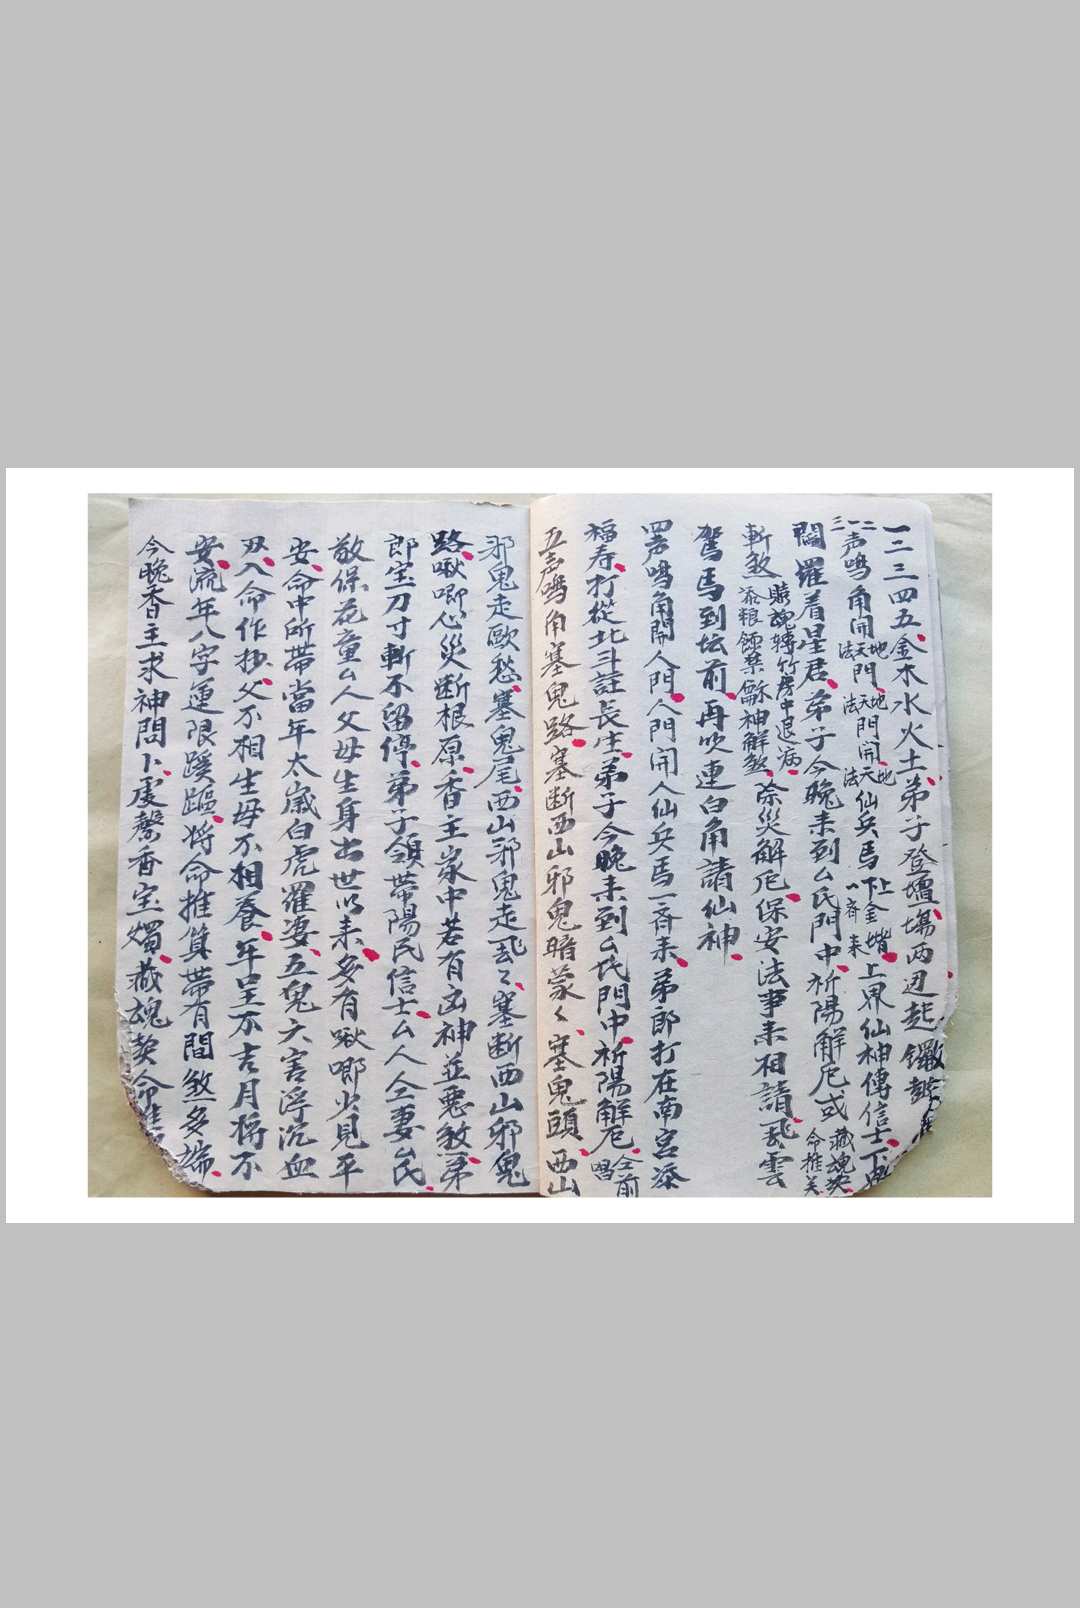 一二三四五金木水火土弟子登壇塲两边起鑼
一二三声鳴角開天地法門天地法門開天地法仙兵馬上下金堦一斉来上界仙神傳信士下
閻羅着星君弟子今晚来到厶氏門中祈陽解厄或藏魂
斬煞添粮鎖禁龢神解煞除災解厄保安法事来相請飛雲
駕馬到坛前再吹連白角請仙神
四声鳴角開人門人門開人仙兵馬一斉来弟郎打在南宮添
福寿打從北斗註長生弟子今晚来到厶氏門中祈陽解厄仝前唱
五声鳴角塞鬼路塞断西山邪鬼暗蒙々塞鬼頭西山
邪鬼走歐愁塞鬼尾西山邪鬼走飛々塞断西山邪鬼
路啾唧心災断根原香主家中若有凶神並惡煞弟
郎宝刀寸斬不留停弟子領帶陽民信士厶人仝妻厶氏
敬保花童厶人父母生身出世以来多有啾唧少見平
安命中所帶當年太歲白虎羅婆五鬼六害浮沉血
刃入命作抄父不相生母不相養年呈不吉月将不
安流年八字運限蹊䠧将命推算帶有間煞多端
今晚香主求神問卜虔馨香宝燭藏魂契命